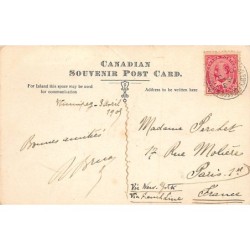 CANADIAN
SOUVENIR POST CARD.
For Inland this space may be used
for communication
Address to be written here.
Winnipeg 3 Avril
Bonnes amitiés
Madame
17 Rue Molière
Paris 1er
France
Via New-York